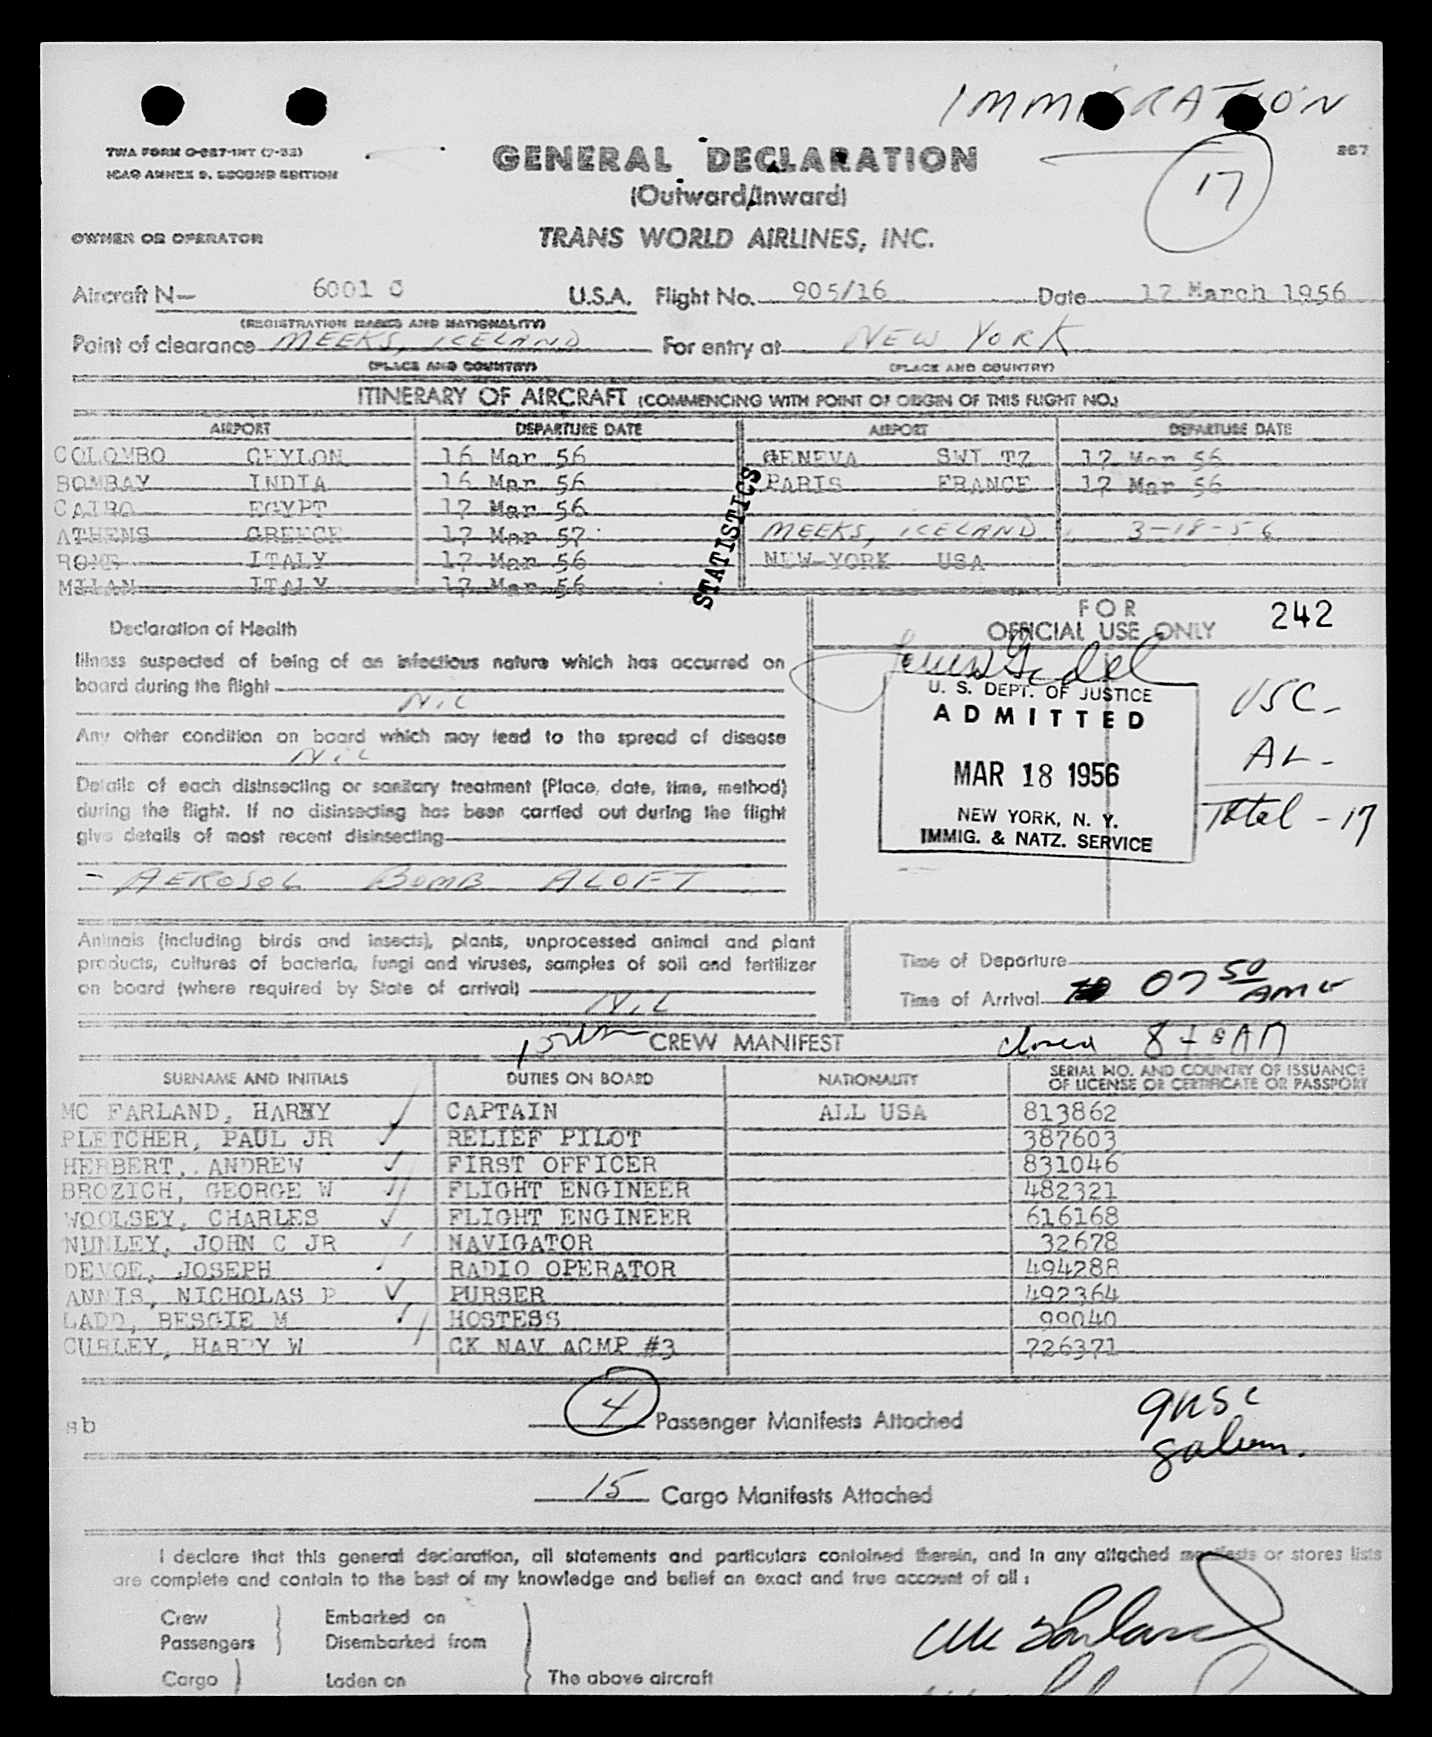 IMMIGRATION
TWA FORM O-827-INT (7-52)
ICAO ANNEX 9, SECOND EDITION
867
17
GENERAL DECLARATION
(Outward/Inward)
OWNER OR OPERATOR
TRANS WORLD AIRLINES, INC.
Aircraft N— 6001 C U.S.A. Flight No. 905/16 Date 17 March 1956
(REGISTRATION MARKS AND NATIONALITY)
Point of clearance MEEKS, ICELAND For entry at NEW YORK
(PLACE AND COUNTRY) (PLACE AND COUNTRY)
ITINERARY OF AIRCRAFT (COMMENCING WITH POINT OF ORIGIN OF THIS FLIGHT NO.)
AIRPORT DEPARTURE DATE AIRPORT DEPARTURE DATE
COLOMBO CEYLON 16 Mar 56 GENEVA SWITZ 17 Mar 56
BOMBAY INDIA 16 Mar 56 PARIS FRANCE 17 Mar 56
CAIRO EGYPT 17 Mar 56
ATHENS GREECE 17 Mar 57 MEEKS, ICELAND 3-18-56
ROME ITALY 17 Mar 56 NEW YORK USA
MILAN ITALY 17 Mar 56
STATISTICS
Declaration of Health
Illness suspected of being of an infectious nature which has occurred on
board during the flight
Nil
Any other condition on board which may lead to the spread of disease
Nil
Details of each disinsecting or sanitary treatment (Place, date, time, method)
during the flight. If no disinsecting has been carried out during the flight
give details of most recent disinsecting
- AEROSOL BOMB ALOFT
FOR
OFFICIAL USE ONLY 242
U. S. DEPT. OF JUSTICE
ADMITTED
MAR 18 1956
NEW YORK, N. Y.
IMMIG. & NATZ. SERVICE
USC -
AL -
Total - 17
Animals (including birds and insects), plants, unprocessed animal and plant
products, cultures of bacteria, fungi and viruses, samples of soil and fertilizer
on board (where required by State of arrival)
Nil
Time of Departure
Time of Arrival 07 50 AM
CREW MANIFEST closed
SURNAME AND INITIALS DUTIES ON BOARD NATIONALITY SERIAL NO. AND COUNTRY OF ISSUANCE
OF LICENSE OR CERTIFICATE OR PASSPORT
MC FARLAND, HARRY CAPTAIN ALL USA 813862
PLETCHER, PAUL JR RELIEF PILOT 387603
HERBERT, ANDREW FIRST OFFICER 831046
BROZICH, GEORGE W FLIGHT ENGINEER 482321
WOOLSEY, CHARLES FLIGHT ENGINEER 616168
NUNLEY, JOHN C JR NAVIGATOR 32678
DEVOE, JOSEPH RADIO OPERATOR 494288
ANNIS, NICHOLAS P PURSER 492364
LADD, BESSIE M HOSTESS 99040
CURLEY, HARRY W CK NAV ACMP #3 726371
sb
4 Passenger Manifests Attached
9 USC
8 alien.
15 Cargo Manifests Attached
I declare that this general declaration, all statements and particulars contained therein, and in any attached manifests or stores lists
are complete and contain to the best of my knowledge and belief an exact and true account of all:
Crew Embarked on
Passengers Disembarked from
Cargo Laden on The above aircraft